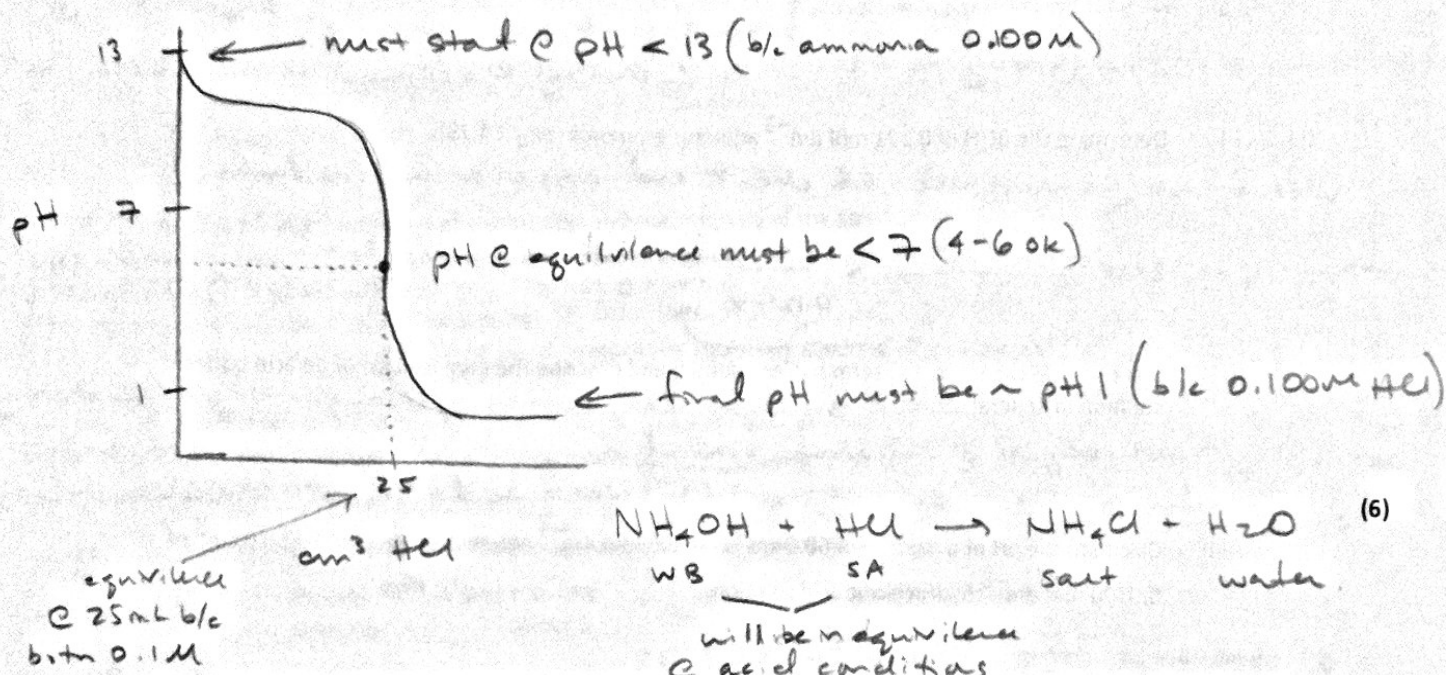 13 ← must start @ pH < 13 (b/c ammonia 0.100M)
pH 7
pH @ equilvilence must be < 7 (4-6 ok)
1 ← final pH must be ~ pH 1 (b/c 0.100M HCl)
25
cm³ HCl
equivilence
@ 25mL b/c
both 0.1M
NH₄OH + HCl → NH₄Cl + H₂O (6)
WB SA salt water
will be in equivilence
@ acid conditions